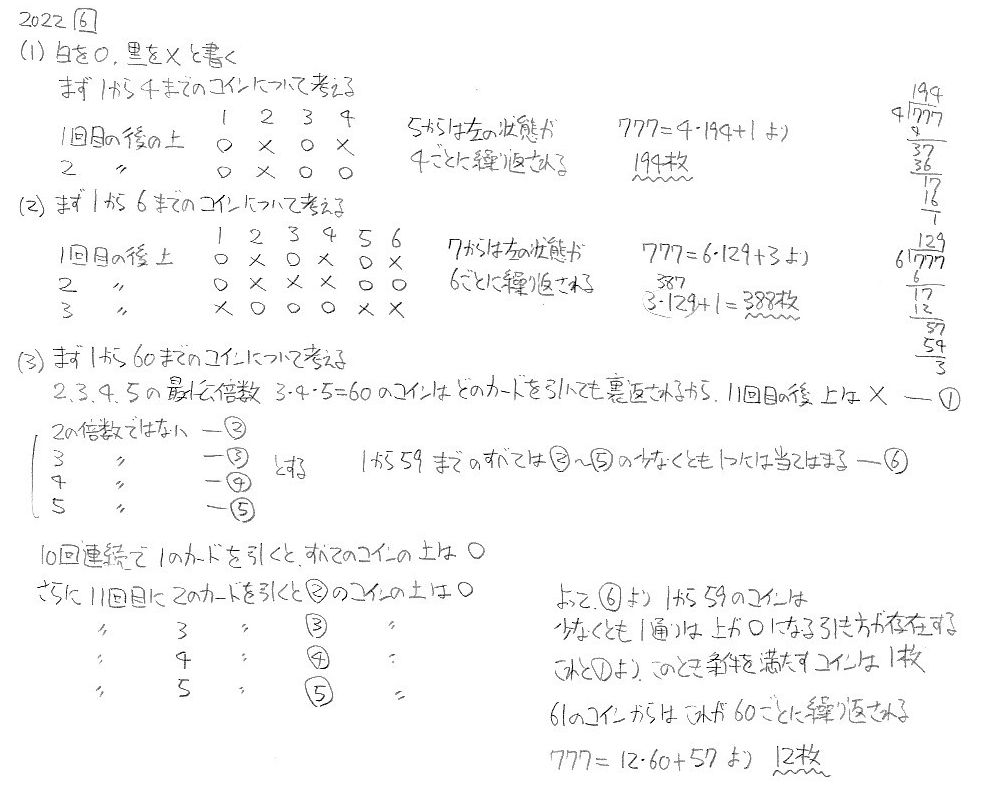 2022 6
(1) 白を○, 黒を×と書く
まず1から4までのコインについて考える
1 2 3 4
1回目の後の上 ○ × ○ ×
2 〃 ○ × ○ ○
5からは左の状態が
4ごとに繰り返される
777=4・194+1 より
194枚
194
4 777
4
37
36
17
16
1
(2) まず1から6までのコインについて考える
1 2 3 4 5 6
1回目の後上 ○ × ○ × ○ ×
2 〃 ○ × × × ○ ○
3 〃 × ○ ○ ○ × ×
7からは左の状態が
6ごとに繰り返される
777=6・129+3より
387
3・129+1=388枚
129
6 777
6
17
12
57
54
3
(3) まず1から60までのコインについて考える
2.3.4.5の最小公倍数 3・4・5=60のコインはどのカードを引いても裏返されるから、11回目の後上は× ー①
2の倍数ではない ー②
3 〃 ー③
4 〃 ー④
5 〃 ー⑤
とする
1から59までのすべては②〜⑤の少なくとも1つには当てはまる ー⑥
10回連続で1のカードを引くと、すべてのコインの上は○
さらに11回目に2のカードを引くと②のコインの上は○
〃 3 〃 ③ 〃
〃 4 〃 ④ 〃
〃 5 〃 ⑤ 〃
よって、⑥より1から59のコインは
少なくとも1通りは上が○になる引き方が存在する
これと①より、このとき条件を満たすコインは1枚
61のコインからはこれが60ごとに繰り返される
777=12・60+57より 12枚